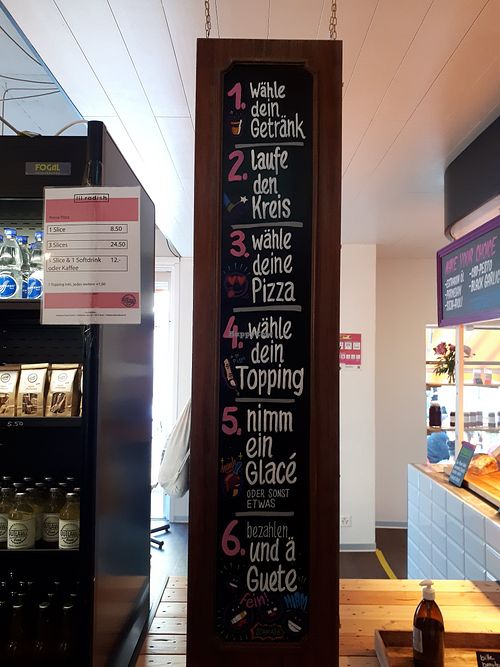 FOGAL
lil radish
1 Slice 8.50
3 Slices 24.50
1 Slice & 1 Softdrink 12.-
oder Kaffee
1 Topping inkl.
5.50
1. wähle
dein
Getränk
2. laufe
den
Kreis
3. wähle
deine
Pizza
4. wähle
dein
Topping
5. nimm
ein
Glacé
ODER SONST
ETWAS
6. bezahlen
und ä
Guete
Fein!
MAKE YOUR CHOICE